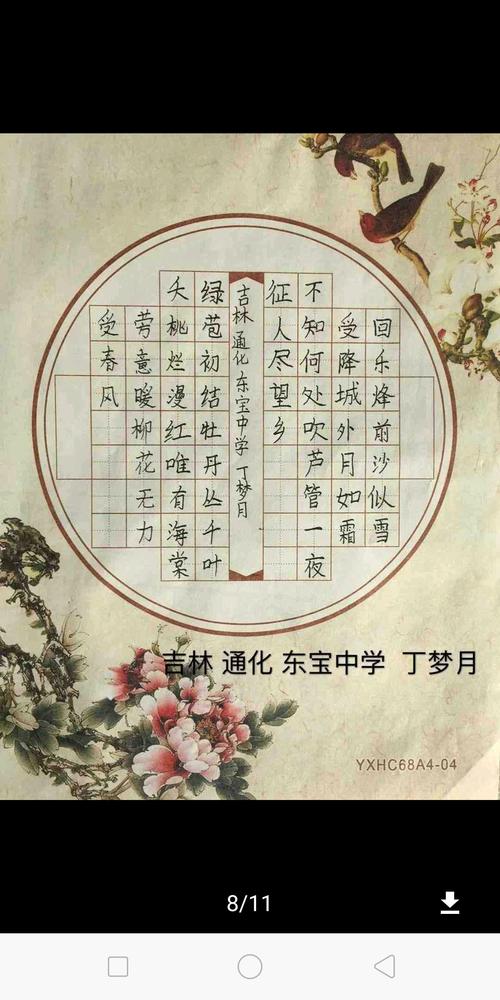 回乐烽前沙似雪
受降城外月如霜
不知何处吹芦管一夜
征人尽望乡
吉林 通化 东宝中学 丁梦月
绿苞初结牡丹丛千叶
夭桃烂漫红唯有海棠
芳意暖柳花无力
受春风
吉林 通化 东宝中学 丁梦月
YXHC68A4-04
8/11